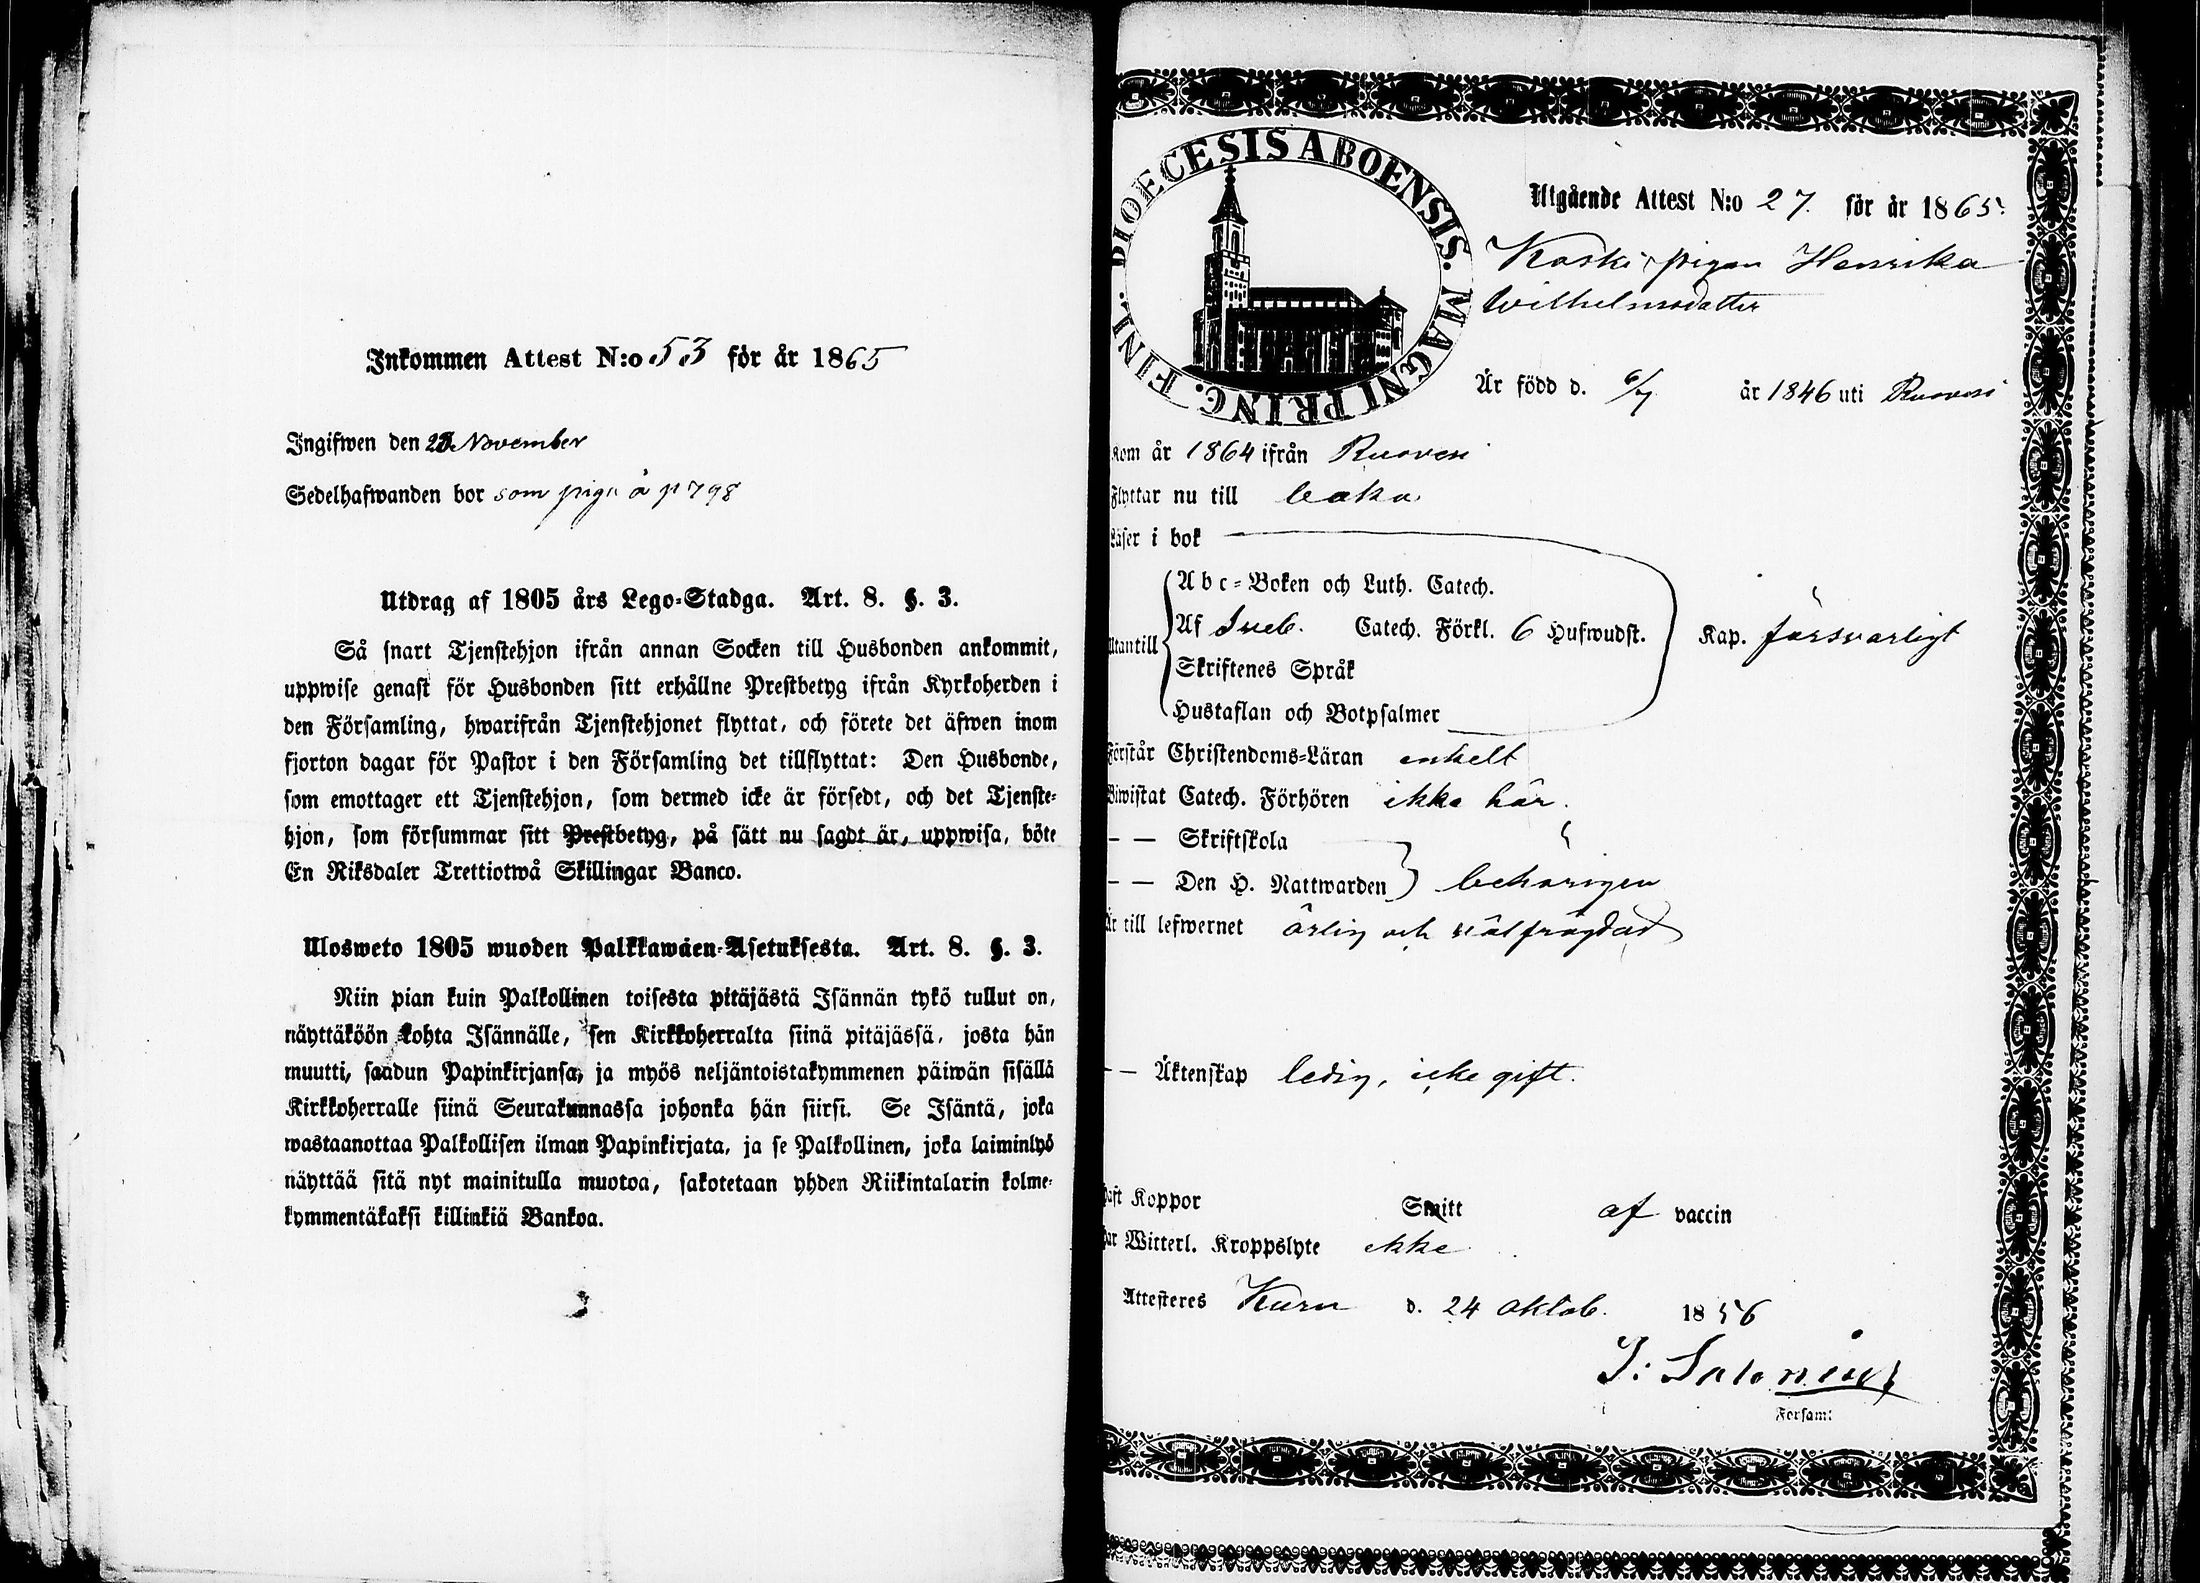 Inkommen Attest N:o 53 för år 1865
Ingifwen den 23 November
Sedelhafwanden bor som piga å p 798
Utdrag af 1805 års Lego-Stadga. Art. 8. §. 3.
Så snart Tjenstehjon ifrån annan Socken till Husbonden ankommit,
uppwise genast för Husbonden sitt erhållne Prestbetyg ifrån Kyrkoherden i
den Församling, hwarifrån Tjenstehjonet flyttat, och förete det äfwen inom
fjorton dagar för Pastor i den Församling det tillflyttat: Den Husbonde,
som emottager ett Tjenstehjon, som dermed icke är försedt, och det Tjenste-
hjon, som försummar sitt Prestbetyg, på sätt nu sagdt är, uppwisa, böte
En Riksdaler Trettiotwå Skillingar Banco.
Ulosweto 1805 wuoden Palkkawäen-Asetuksesta. Art. 8. §. 3.
Niin pian kuin Palkollinen toisesta pitäjästä Isännän tykö tullut on,
näyttäköön kohta Isännälle, sen Kirkkoherralta siinä pitäjässä, josta hän
muutti, saadun Papinkirjansa, ja myös neljäntoistakymmenen päiwän sisällä
Kirkkoherralle siinä Seurakunnassa johonka hän siirsi. Se Isäntä, joka
wastaanottaa Palkollisen ilman Papinkirjata, ja se Palkollinen, joka laiminlyö
näyttää sitä nyt mainitulla muotoa, sakotetaan yhden Riikintalarin kolme-
kymmentäkaksi killinkiä Bankoa.
DIOECESIS ABOENSIS. MAGNI PRINC. FINL.
Utgående Attest N:o 27. för år 1865.
Koski, pigan Henrika
Wilhelmsdotter
Är född d. 6/7 år 1846 uti Ruovesi
Kom år 1864 ifrån Ruovesi
Flyttar nu till
Läser i bok
Abc-Boken och Luth. Catech.
Af Sveb. Catech. Förkl. 6 Hufwudst.
Utantill
Kap. försvarligt
Skriftenes Språk
Hustaflan och Botpsalmer
Förstår Christendoms-Läran enkelt
Biwistat Catech. Förhören ikke här.
— — Skriftskola
— — Den H. Nattwarden behörigen
Är till lefwernet ärlig och välfrägdad
— — Äktenskap ledig, icke gift.
Haft Koppor Smitt af vaccin
Har Witterl. Kroppslyte ikke
Attesteres Kuru d. 24 Oktob. 1856
I: Salonius
Forsaml